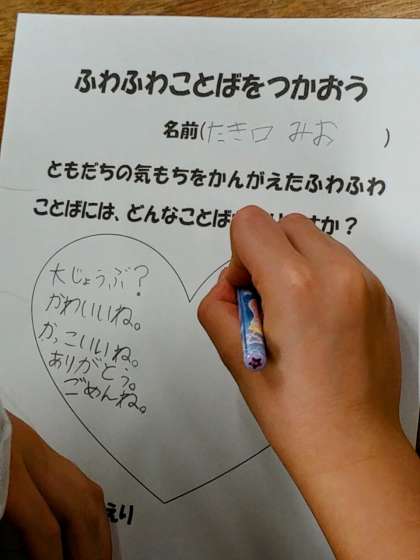 ふわふわことばをつかおう
名前(たき口 みお )
ともだちの気もちをかんがえたふわふわ
ことばには、どんなことば すか？
大じょうぶ？
かわいいね。
かっこいいね。
ありがとう。
ごめんね。
えり